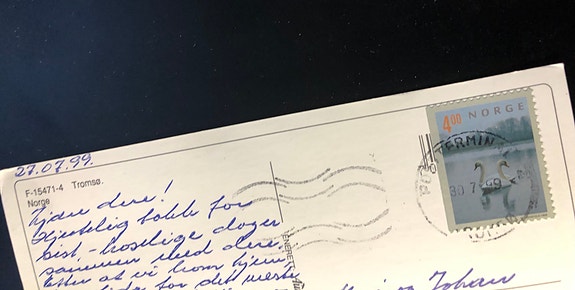 27.07.99.
F-15471-4 Tromsø.
Norge
Kjære dere!
Hjertelig takk for
sist, - koselige dager
sammen med dere.
Etter at vi kom hjem,
for det meste
Johan
NORGE
4.00
TERMIN
30.7.99